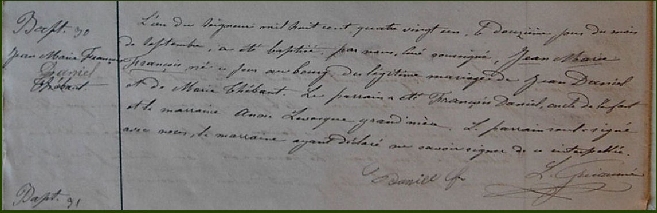 Bapt. 30
Jean Marie François
Daniel
Thébaut
L'an du Seigneur mil huit cent quatre vingt un, le douzième jour du mois
de Septembre, a été baptisé par nous, curé soussigné, Jean Marie
François, né ce jour au bourg du légitime mariage de Jean Daniel
et de Marie Thébaut. Le parrain a été François Daniel, oncle de l'enfant
et la marraine Anne Levesque grand'mère. Le parrain seul a signé
avec nous, la marraine ayant déclaré ne savoir signer de ce interpellée.
Daniel fr
Bapt. 31